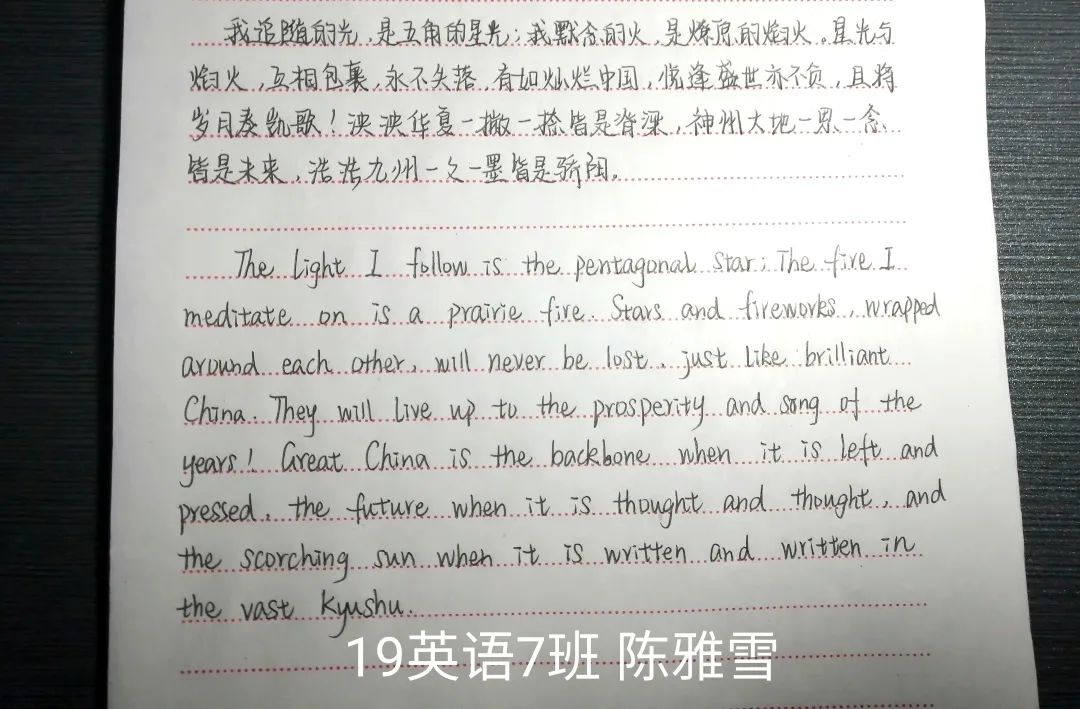 我追随的光,是五角的星光;我默念的火,是燎原的焰火。星光与
焰火,互相包裹,永不失落,有如灿烂中国,恍逢盛世亦不负,且将
岁月奏凯歌!泱泱华夏一撇一捺皆是脊梁,神州大地一思一念
皆是未来,浩浩九州一文一墨皆是骄阳。
The light I follow is the pentagonal star; The fire I
meditate on is a prairie fire. Stars and fireworks, wrapped
around each other, will never be lost, just like brilliant
China. They will live up to the prosperity and song of the
years! Great China is the backbone when it is left and
pressed, the future when it is thought and thought, and
the scorching sun when it is written and written in
the vast Kyushu.
19英语7班 陈雅雪